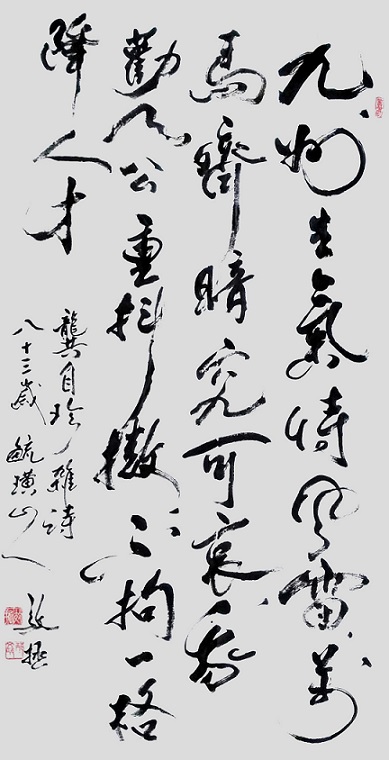 九州生氣恃風雷萬
馬齊暗究可哀我
勸天公重抖擻不拘一格
降人才
龔自珍雜詩
八十三歲毓璜山人